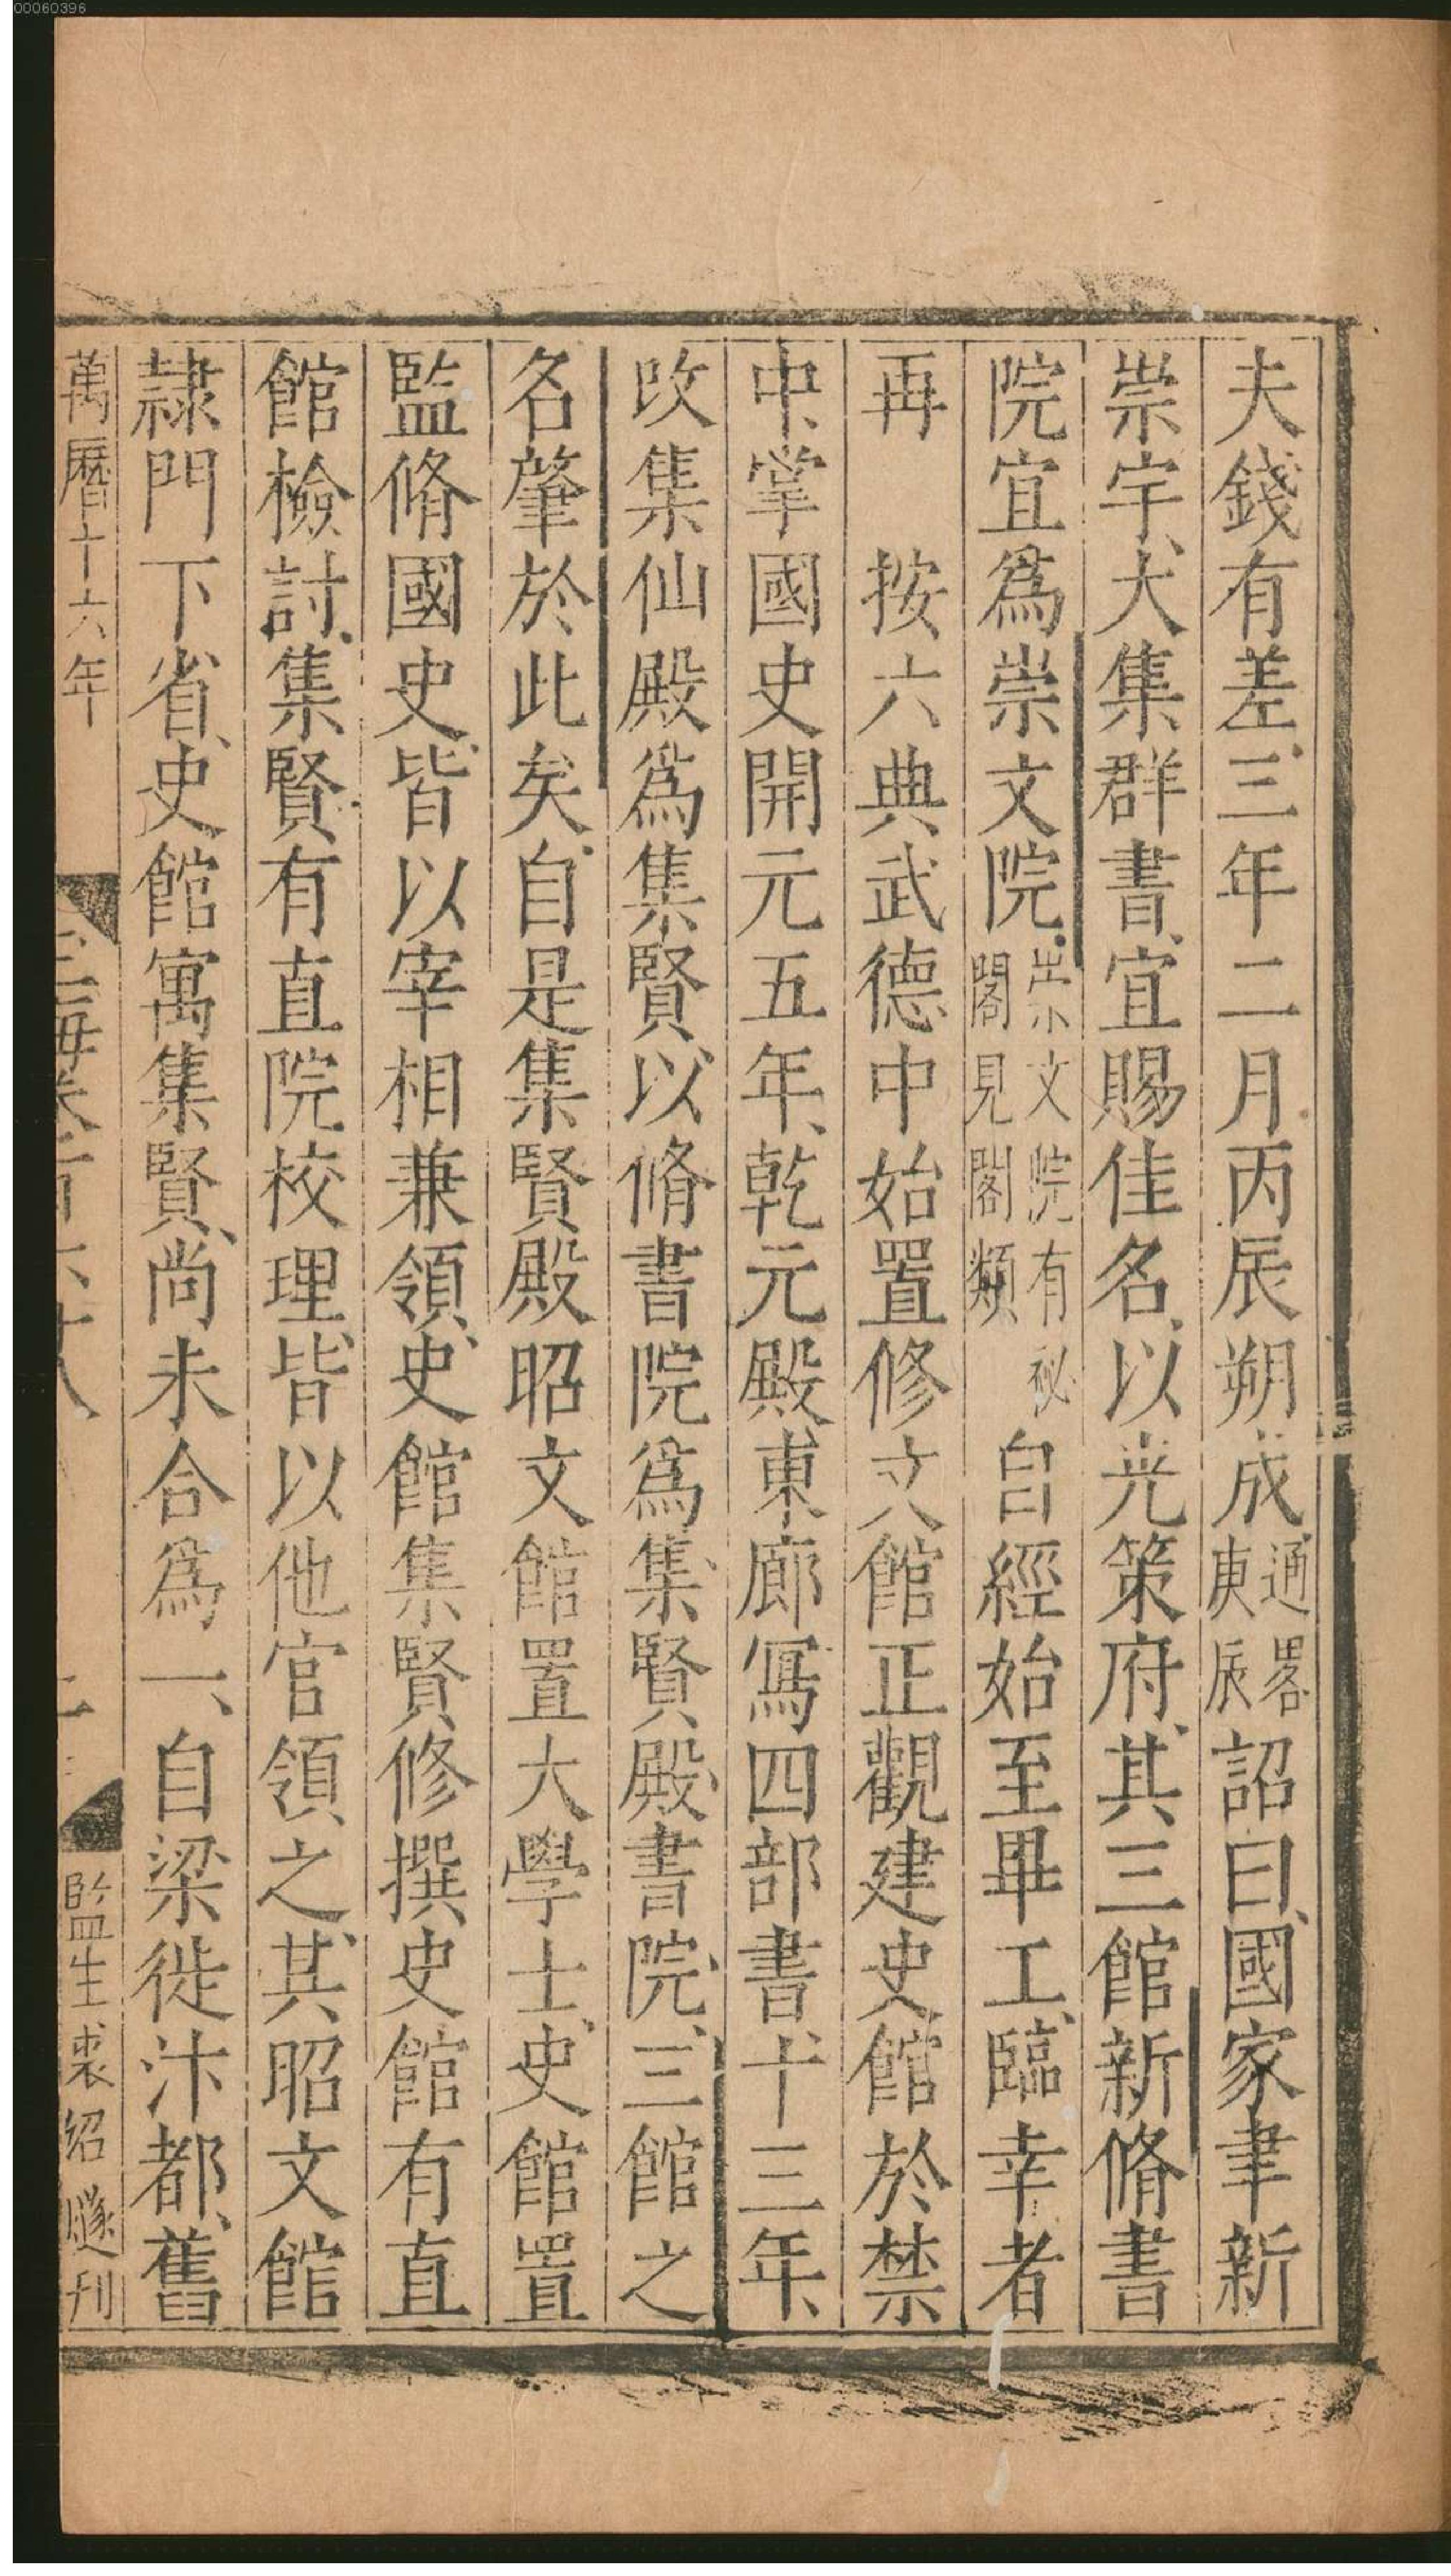 00060396
夫錢有差三年二月丙辰朔成通畧庚辰詔曰國家聿新
崇宇大集群書宜賜佳名以光策府其三館新脩書
院宜爲崇文院崇文院有祕閣見閣類自經始至畢工臨幸者
再　按六典武德中始置修文館正觀建史館於禁
中掌國史開元五年乾元殿東廊冩四部書十三年
改集仙殿爲集賢以脩書院爲集賢殿書院三館之
名肇於此矣自是集賢殿昭文館置大學士史館置
監脩國史皆以宰相兼領史館集賢修撰史館有直
館檢討集賢有直院校理皆以他官領之其昭文館
隷門下省史館寓集賢尚未合爲一自梁徙汴都舊
萬曆十六年　玉海卷一百六十八　監生裘紹㷭刊